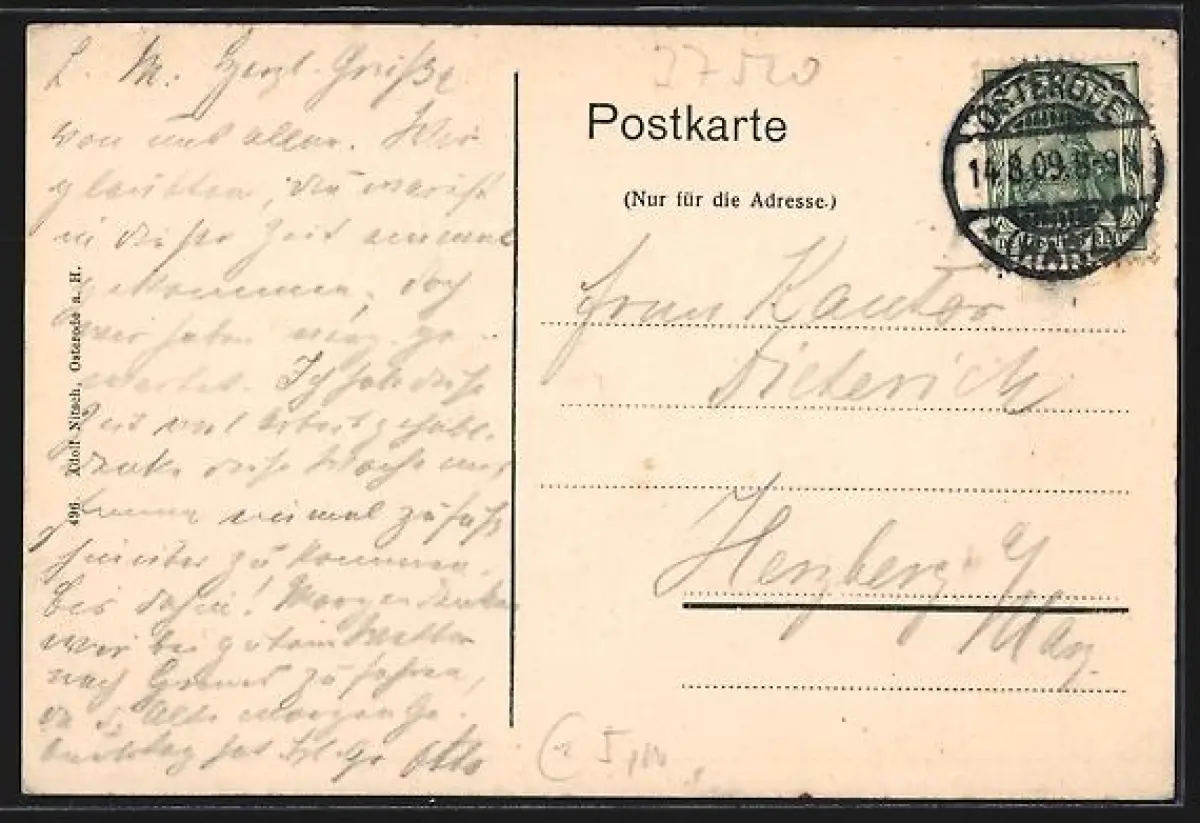 L. M. Herzl. Grüße
von uns allen. Wir
glaubten, du wärst
in dieser Zeit einmal
gekommen, doch
wir haben ge-
wartet. Ich habe diese
Zeit viel Arbeit gehabt.
denke diese Woche
einmal zu Fuß
hinüber zu kommen.
bis dahin! Morgen denken
wir bei gutem Wetter
nach zu fahren,
da d. Alte morgen Ge-
burtstag hat. Hzl. Gr. Otto
496. Adolf Nitsch, Osterode a. H.
37520
Postkarte
(Nur für die Adresse.)
OSTERODE
14.8.09. 8-9 N
* (HARZ)
Frau Kantor
Dieterich
Herzberg a/
Harz.